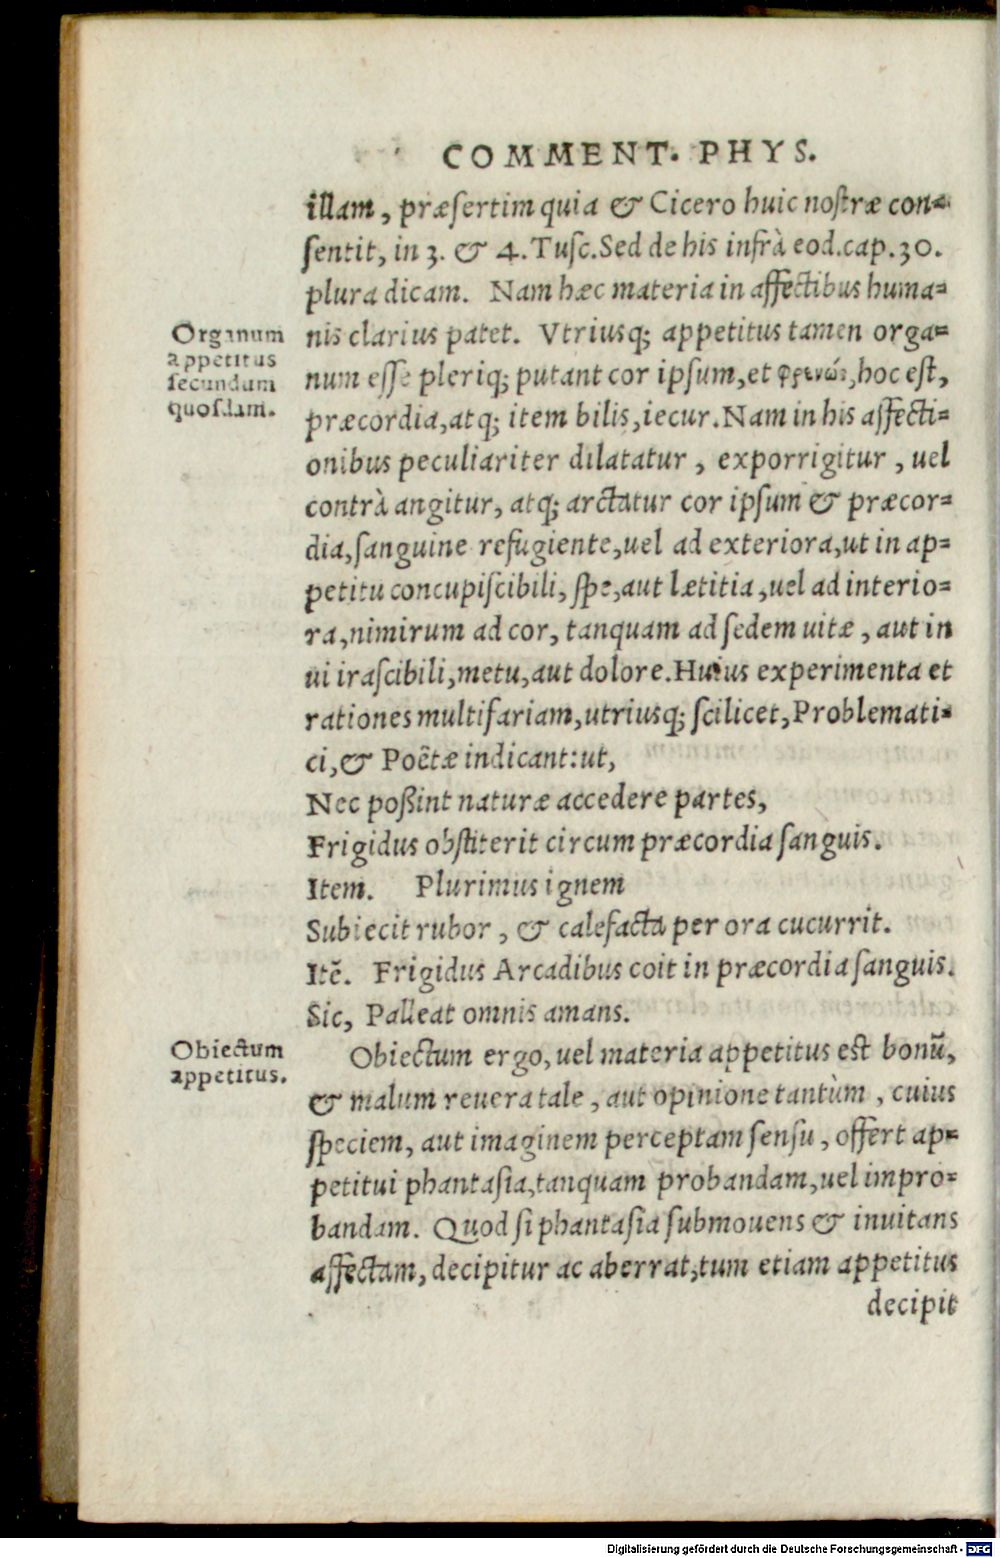 COMMENT. PHYS.
illam, præsertim quia & Cicero huic nostræ con-
sentit, in 3. & 4. Tusc. Sed de his infrà eod. cap. 30.
plura dicam. Nam hæc materia in affectibus huma-
nis clarius patet. Vtriusq; appetitus tamen orga-
num esse pleriq; putant cor ipsum, et hoc est,
præcordia, atq; item bilis, iecur. Nam in his affecti-
onibus peculiariter dilatatur, exporrigitur, uel
contrà angitur, atq; arctatur cor ipsum & præcor-
dia, sanguine refugiente, uel ad exteriora, ut in ap-
petitu concupiscibili, spe, aut lætitia, uel ad interio-
ra, nimirum ad cor, tanquam ad sedem uitæ, aut in
ui irascibili, metu, aut dolore. Huius experimenta et
rationes multifariam, utriusq; scilicet, Problemati-
ci, & Poëtæ indicant: ut,
Nec poßint naturæ accedere partes,
Frigidus obstiterit circum præcordia sanguis.
Item. Plurimus ignem
Subiecit rubor, & calefacta per ora cucurrit.
Itẽ. Frigidus Arcadibus coit in præcordia sanguis.
Sic, Palleat omnis amans.
Obiectum ergo, uel materia appetitus est bonũ,
& malum reuera tale, aut opinione tantùm, cuius
speciem, aut imaginem perceptam sensu, offert ap-
petitui phantasia, tanquam probandam, uel impro-
bandam. Quod si phantasia submouens & inuitans
affectam, decipitur ac aberrat, tum etiam appetitus
decipit
Organum
appetitus
secundum
quosdam.
Obiectum
appetitus.
Digitalisierung gefördert durch die Deutsche Forschungsgemeinschaft - DFG